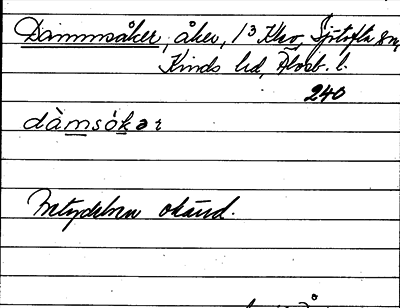 Dammsåker, åker, 1³ Kbo, Sjötofta sn,
Kinds hd, Älvsb. l.
240
dàmsó̀kər
Betydelsen okänd.